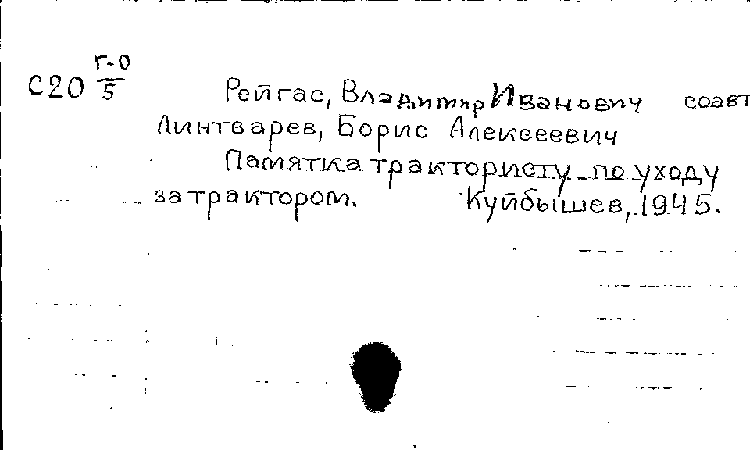 Г-О
С20 5
Рейгас, Владимир Иванович соавт
Линтварев, Борис Алексеевич
Памятка трактористу по уходу
за трактором. Куйбышев, 1945.